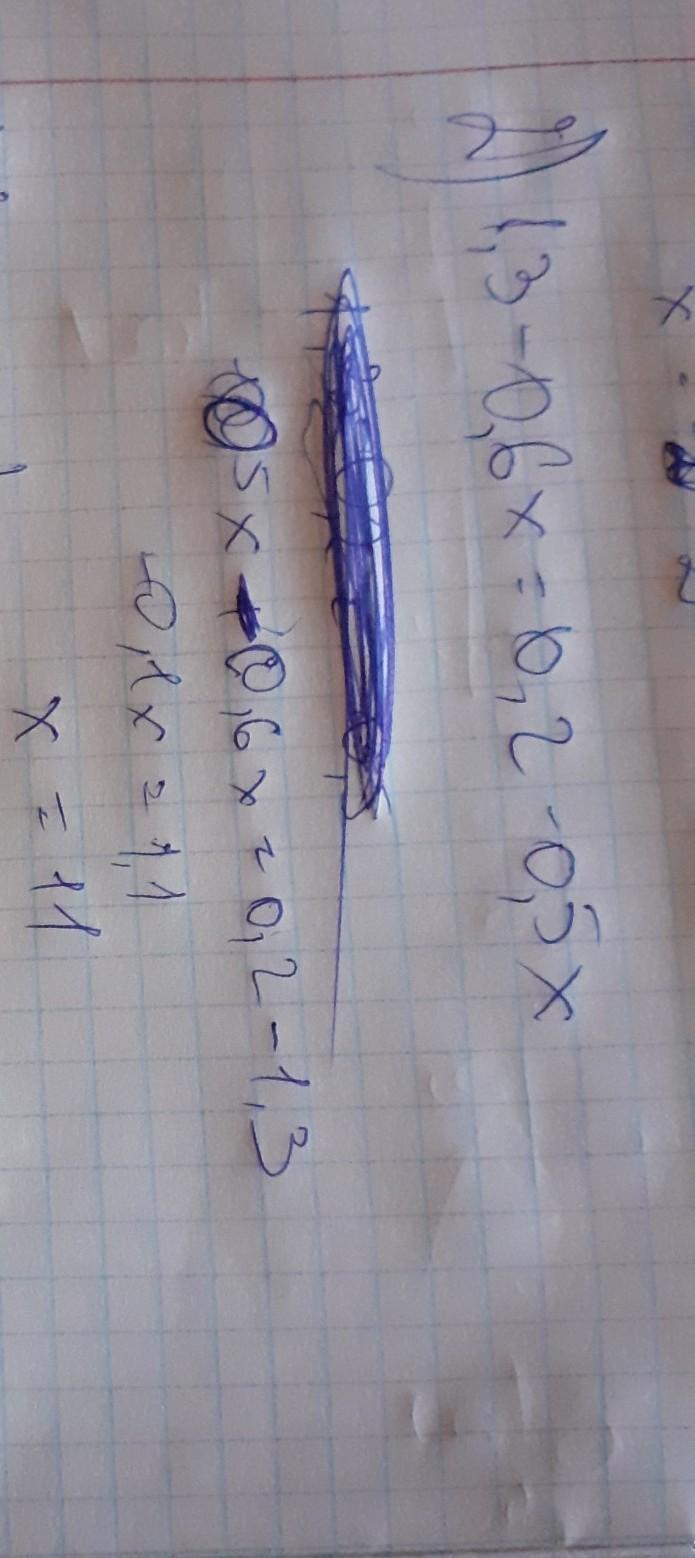 x = - 2
2) 1,3 - 0,6x = 0,2 - 0,5x
0,5x - 0,6x = 0,2 - 1,3
-0,1x = 1,1
x = 11